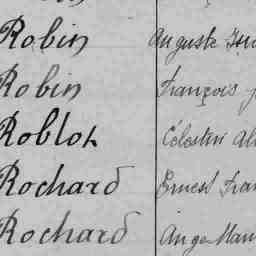 Robin Auguste
Robin François
Roblot Célestin
Rochard Ernest
Rochard Ange